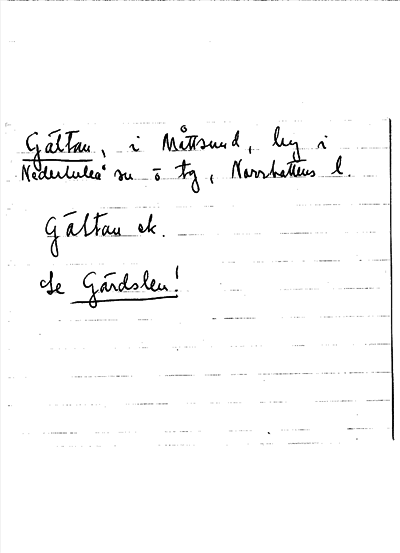 Gältan, i Måttsund, by i
Nederluleå sn o tg, Norrbottens l.
Gältan ek.
Se Gärdslen!